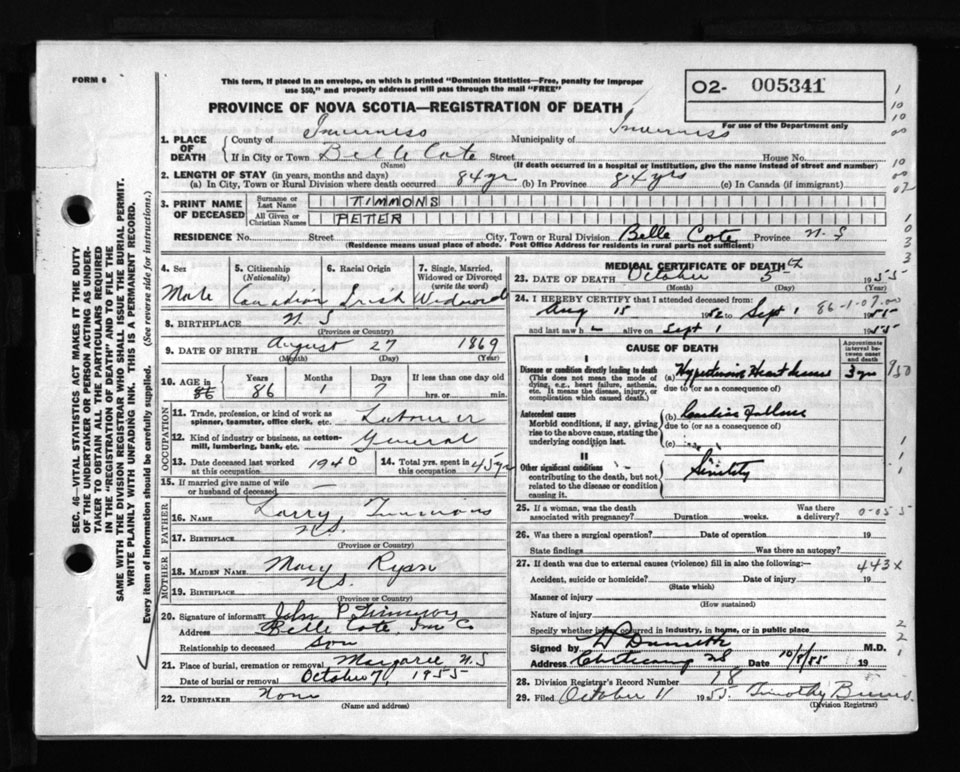 FORM 6
This form, if placed in an envelope, on which is printed "Dominion Statistics—Free, penalty for improper
use $50," and properly addressed will pass through the mail "FREE"
PROVINCE OF NOVA SCOTIA—REGISTRATION OF DEATH
02- 005341
For use of the Department only
1. PLACE OF DEATH
County of Inverness Municipality of Inverness
If in City or Town Belle Cote Street House No.
(Name) (If death occurred in a hospital or institution, give the name instead of street and number)
2. LENGTH OF STAY (in years, months and days)
(a) In City, Town or Rural Division where death occurred 84 yr (b) In Province 84 yrs (c) In Canada (if immigrant)
3. PRINT NAME OF DECEASED
Surname or Last Name TIMMONS
All Given or Christian Names PETER
RESIDENCE No. Street City, Town or Rural Division Belle Cote Province N.S
(Residence means usual place of abode. Post Office Address for residents in rural parts not sufficient)
4. Sex 5. Citizenship (Nationality) 6. Racial Origin 7. Single, Married, Widowed or Divorced (write the word)
Male Canadian Irish Widowed
8. BIRTHPLACE N.S
(Province or Country)
9. DATE OF BIRTH August 27 1869
(Month) (Day) (Year)
10. AGE in Years Months Days If less than one day old
86 86 1 7 hrs. or min.
OCCUPATION
11. Trade, profession, or kind of work as spinner, teamster, office clerk, etc. Labourer
12. Kind of industry or business, as cotton-mill, lumbering, bank, etc. General
13. Date deceased last worked at this occupation 1940 14. Total yrs. spent in this occupation 45 yr
15. If married give name of wife or husband of deceased —
FATHER
16. NAME Larry Timmons
17. BIRTHPLACE N.S.
(Province or Country)
MOTHER
18. MAIDEN NAME Mary Ryan
19. BIRTHPLACE N.S.
(Province or Country)
20. Signature of informant John P. Timmons
Address Belle Cote, Inv Co
Relationship to deceased Son
21. Place of burial, cremation or removal Margaree N.S
Date of burial or removal October 7, 1955
22. UNDERTAKER None
(Name and address)
MEDICAL CERTIFICATE OF DEATH
23. DATE OF DEATH October 5th 1955
(Month) (Day)
24. I HEREBY CERTIFY that I attended deceased from:
Aug 15 1952 to Sept 1 1955
86-1-07.00
and last saw h alive on Sept 1 1955
CAUSE OF DEATH
Approximate interval between onset and death
I
Disease or condition directly leading to death
(This does not mean the mode of dying, e.g., heart failure, asthenia, etc. It means the disease, injury, or complication which caused death.)
(a) Hypertensive Heart 3 yr
due to (or as a consequence of)
Antecedent causes
Morbid conditions, if any, giving rise to the above cause, stating the underlying condition last.
(b) Cardiac Failure
due to (or as a consequence of)
(c)
II
Other significant conditions
contributing to the death, but not related to the disease or condition causing it.
Senility
25. If a woman, was the death associated with pregnancy? Duration weeks. Was there a delivery?
26. Was there a surgical operation? Date of operation 19
State findings Was there an autopsy?
27. If death was due to external causes (violence) fill in also the following:—
443x
Accident, suicide or homicide? Date of injury 19
(State which)
Manner of injury
(How sustained)
Nature of injury
Specify whether injury occurred in industry, in home, or in public place
Signed by M.D.
Address Cheticamp NS Date 10/8/55 19
28. Division Registrar's Record Number 18
29. Filed October 11 1955
(Division Registrar)
SEC. 46—VITAL STATISTICS ACT MAKES IT THE DUTY
OF THE UNDERTAKER OR PERSON ACTING AS UNDER-
TAKER TO OBTAIN ALL THE PARTICULARS REQUIRED
IN THE "REGISTRATION OF DEATH" AND TO FILE THE
SAME WITH THE DIVISION REGISTRAR WHO SHALL ISSUE THE BURIAL PERMIT.
WRITE PLAINLY WITH UNFADING INK. THIS IS A PERMANENT RECORD.
Every item of information should be carefully supplied. (See reverse side for instructions.)